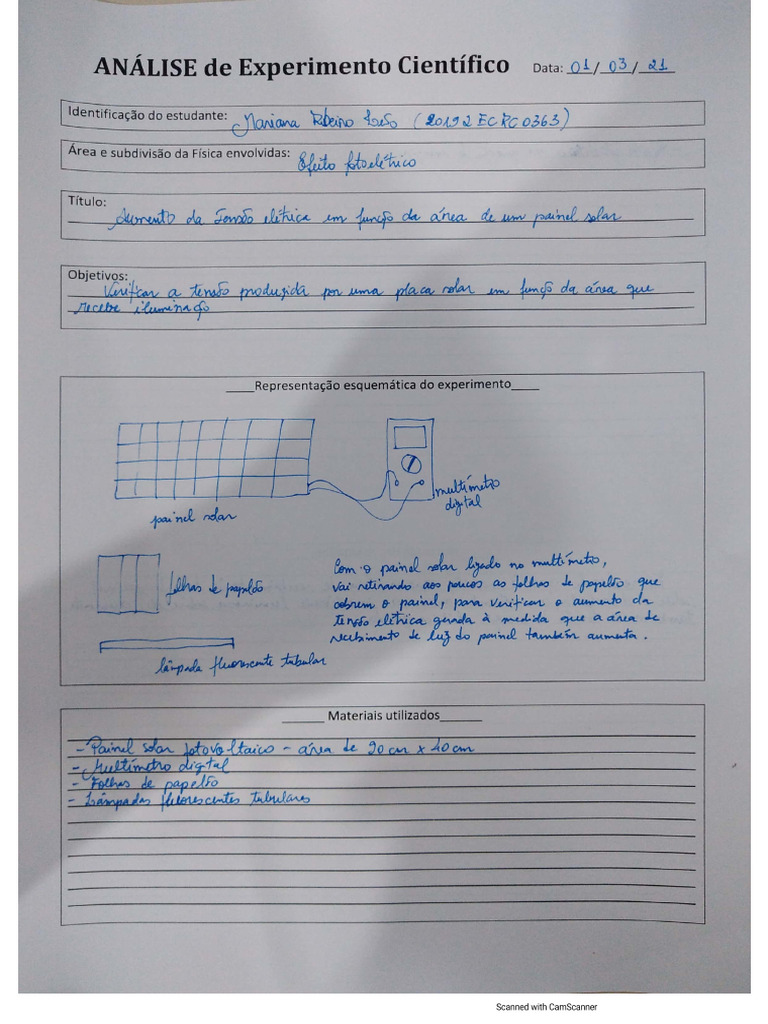 ANÁLISE de Experimento Científico Data: 01/03/21
Identificação do estudante: Mariana Ribeiro (20192ECRC0363)
Área e subdivisão da Física envolvidas: Efeito fotoelétrico
Título:
Aumento da Tensão elétrica em função da área de um painel solar
Objetivos:
Verificar a tensão produzida por uma placa solar em função da área que
recebe iluminação
____Representação esquemática do experimento____
painel solar
multímetro
digital
folhas de papelão
lâmpada fluorescente tubular
Com o painel solar ligado no multímetro,
vai retirando aos poucos as folhas de papelão que
cobrem o painel, para verificar o aumento da
tensão elétrica gerada à medida que a área de
recebimento de luz do painel também aumenta.
______ Materiais utilizados______
- Painel solar fotovoltaico - área de 20cm x 40cm
- Multímetro digital
- Folhas de papelão
- Lâmpadas fluorescentes tubulares
Scanned with CamScanner